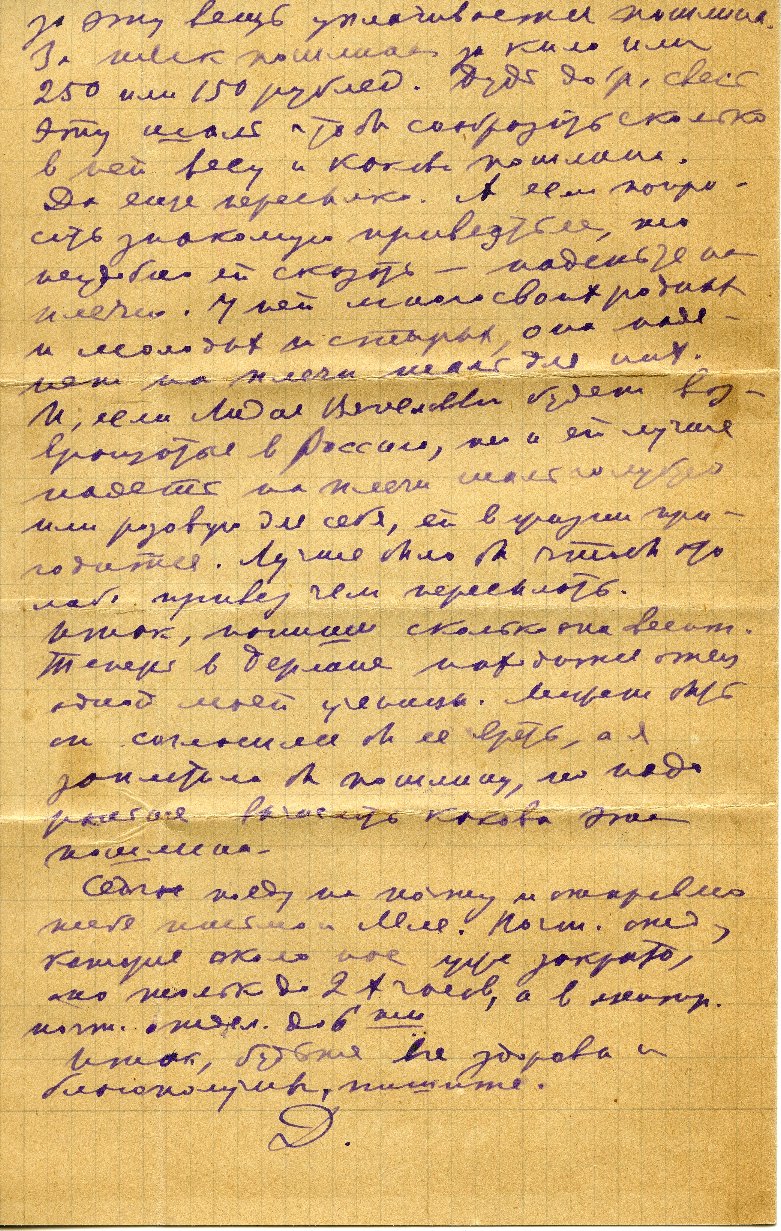 за эту вещь уплачивается пошлина.
За шелк пошлина за кило или
250 или 150 рублей. Будь добр, свесь
эту шаль чтобы сообразить сколько
в ней весу и какова пошлина.
Да еще пересылка. А если попро-
сить знакомую привезть ее, то
неудобно ей сказать — наденьте на
плечи. У ней много своих родных
и молодых и старых, она наде-
нет на плечи шаль для них.
И, если Лидия будет воз-
вращаться в Россию, то и ей лучше
надеть на плечи шаль голубую
или розовую для себя, ей в при-
годится. Лучше было бы чтобы
привез чем пересылать.
Итак, напиши сколько она весит.
Теперь в Берлине находится отец
одной моей ученицы. Может быть
он согласился бы ее взять, а я
заплатила бы пошлину, но надо
раньше выяснить какова эта
пошлина.
Сейчас пойду на почту и отправлю
тебе письмо и Леле. Почт. отд,
которое около нас уже закрыто,
оно только до 2 х часов, а в
почт. отдел. до 6 ти
Итак, будьте все здоровы и
благополучны, пишите.
Д.